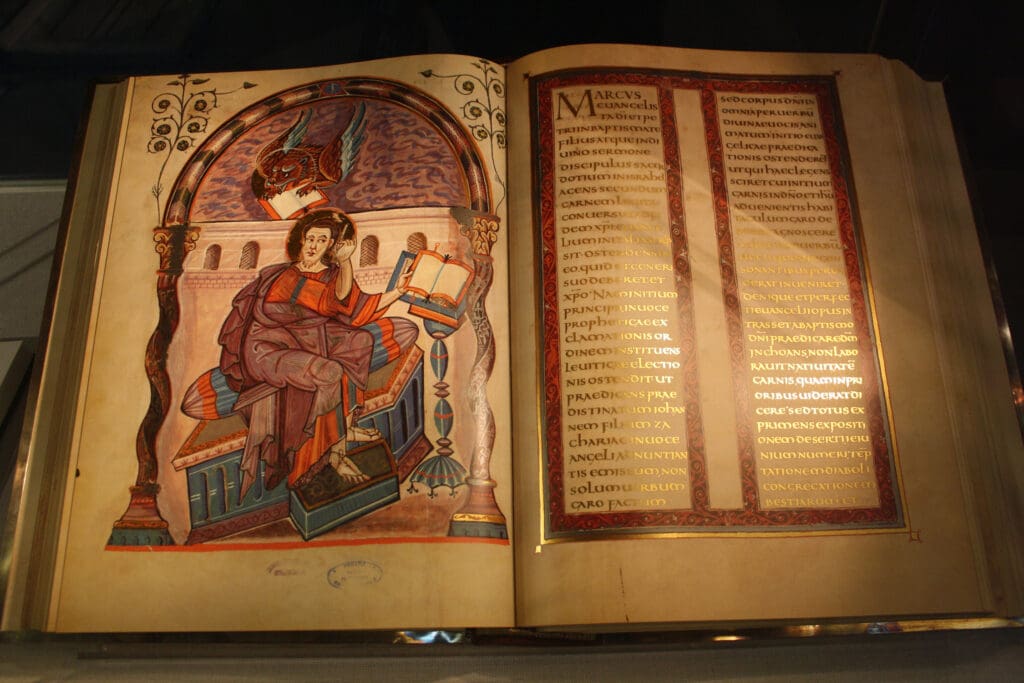 MARCVS
EUANGELIS
TA DI ET PE
TRI IN BAPTISMATE
FILIUS ATQUE IN DI
UINO SERMONE
DISCIPULUS SACER
DOTIUM IN ISRAHEL
AGENS SECUNDUM
CARNEM
CONUERSUS
DEM XPI
LIUM IN
SIT OSTENDENS
EO QUID ET GENERI
SUO DEBERET ET
XPO NAM INITIUM
PRINCIPII IN UOCE
PROPHETICAE EX
CLAMATIONIS OR
DINEM INSTITUENS
LEUITICAE ELECTIO
NIS OSTENDIT UT
PRAEDICANS PRAE
DISTINATUM IOHAN
NEM FILIUM ZA
CHARIAE IN UOCE
ANGELI ADNUNTIAN
TIS EMISSUM NON
SOLUM UERBUM
CARO FACTUM
SED CORPUS DNI IN
OMNIA PER UERBU
DIUINAE UOCIS ANI
MATUM INITIO EUAN
GELICAE PRAEDICA
TIONIS OSTENDERET
UT QUI HAEC LEGENS
SCIRET CUI INITIUM
CARNIS IN DNO ET IHU
ADUENIENTIS HABI
TACULUM CARO DE
AGNOSCERE
SONANTIBUS PER
DERAT INUENIRET
DENIQUE ET PERFEC
TI EUANGELII OPUS IN
TRANS ET A BAPTISMO
DNI PRAEDICARE DM
INCHOANS NON LABO
RAUIT NATIUITATE
CARNIS QUAM IN PRI
ORIBUS UIDERAT DI
CERE SED TOTUS EX
PRIMENS EXPOSITI
ONEM DESERTI IEIU
NIUM NUMERI TEMP
TATIONEM DIABOLI
CONGREGATIONEM
BESTIARUM ET